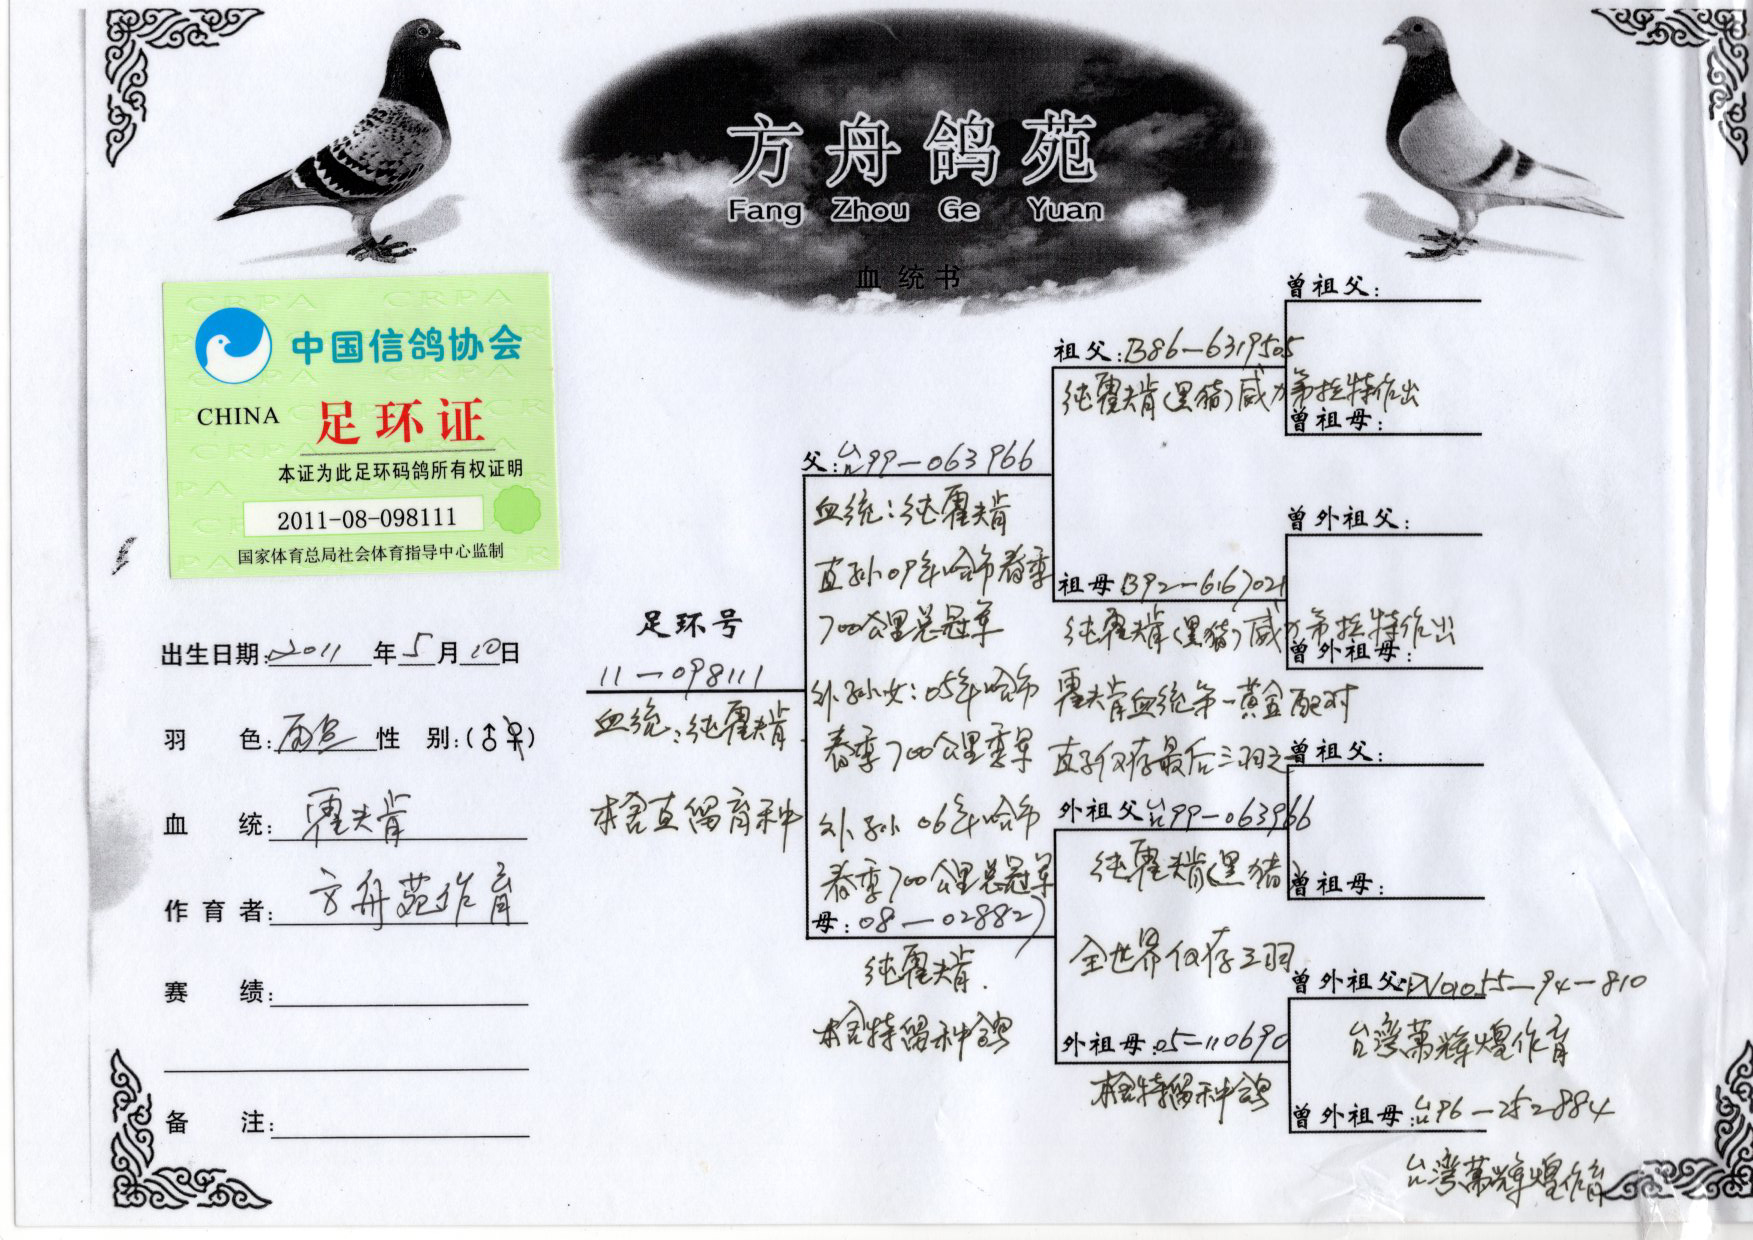 方舟鸽苑
Fang Zhou Ge Yuan
血统书
CRPA CRPA
中国信鸽协会
CHINA 足环证
本证为此足环码鸽所有权证明
2011-08-098111
国家体育总局社会体育指导中心监制
出生日期:2011年5月10日
羽 色: 性 别:(♂♀)
血 统:霍夫肯
作育者:方舟苑作育
赛 绩:
备 注:
足环号
11-098111
血统:纯霍夫肯
本舍直留育种
父:台99-063966
血统:纯霍夫肯
直孙09年哈市春季
700公里总冠军
外孙女:05年哈市
春季700公里季军
外孙06年哈市
春季700公里总冠军
母:08-028827
纯霍夫肯.
本舍特留种鸽
祖父:B86-6319505
纯霍夫肯(黑猪)威力第拉特作出
祖母B92-6167021
纯霍夫肯(黑猪)威力第拉特作出
霍夫肯血统第一黄金配对
直子仅存最后三羽之一
外祖父台99-063966
纯霍夫肯(黑猪
全世界仅存三羽
外祖母:05-110690
本舍特留种鸽
曾祖父:
曾祖母:
曾外祖父:
曾外祖母:
曾祖父:
曾祖母:
曾外祖父:DV01055-94-810
台湾萬辉煌作育
曾外祖母:台96-252884
台湾萬辉煌作育